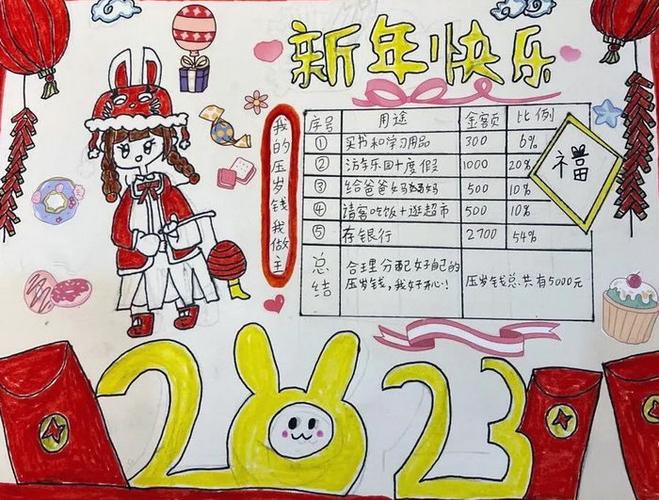 新年快乐
我的压岁钱我做主
序号 用途 金额 比例
① 买书和学习用品 300 6%
② 车乐园+度假 1000 20%
③ 给爸爸妈妈 500 10%
④ 请客吃饭+逛超市 500 10%
⑤ 存银行 2700 54%
总结
合理分配好自己的
压岁钱,我好开心!
压岁钱总共有5000元
福
2023